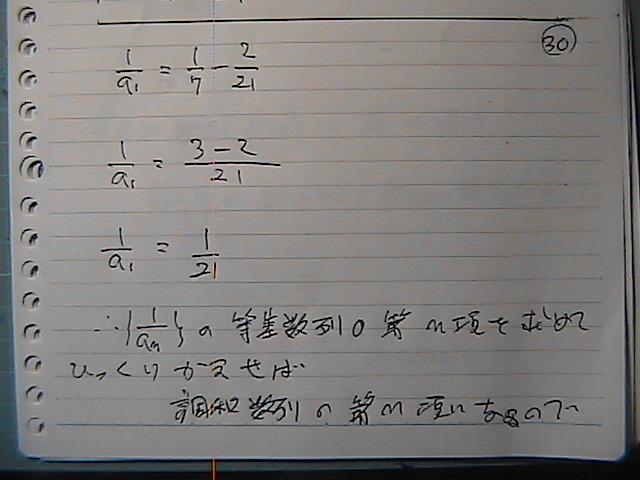 30
1/a₁ = 1/7 - 2/21
1/a₁ = (3-2)/21
1/a₁ = 1/21
∴{1/aₙ}の等差数列の第n項を求めて
ひっくりかえせば
調和数列の第n項になるので